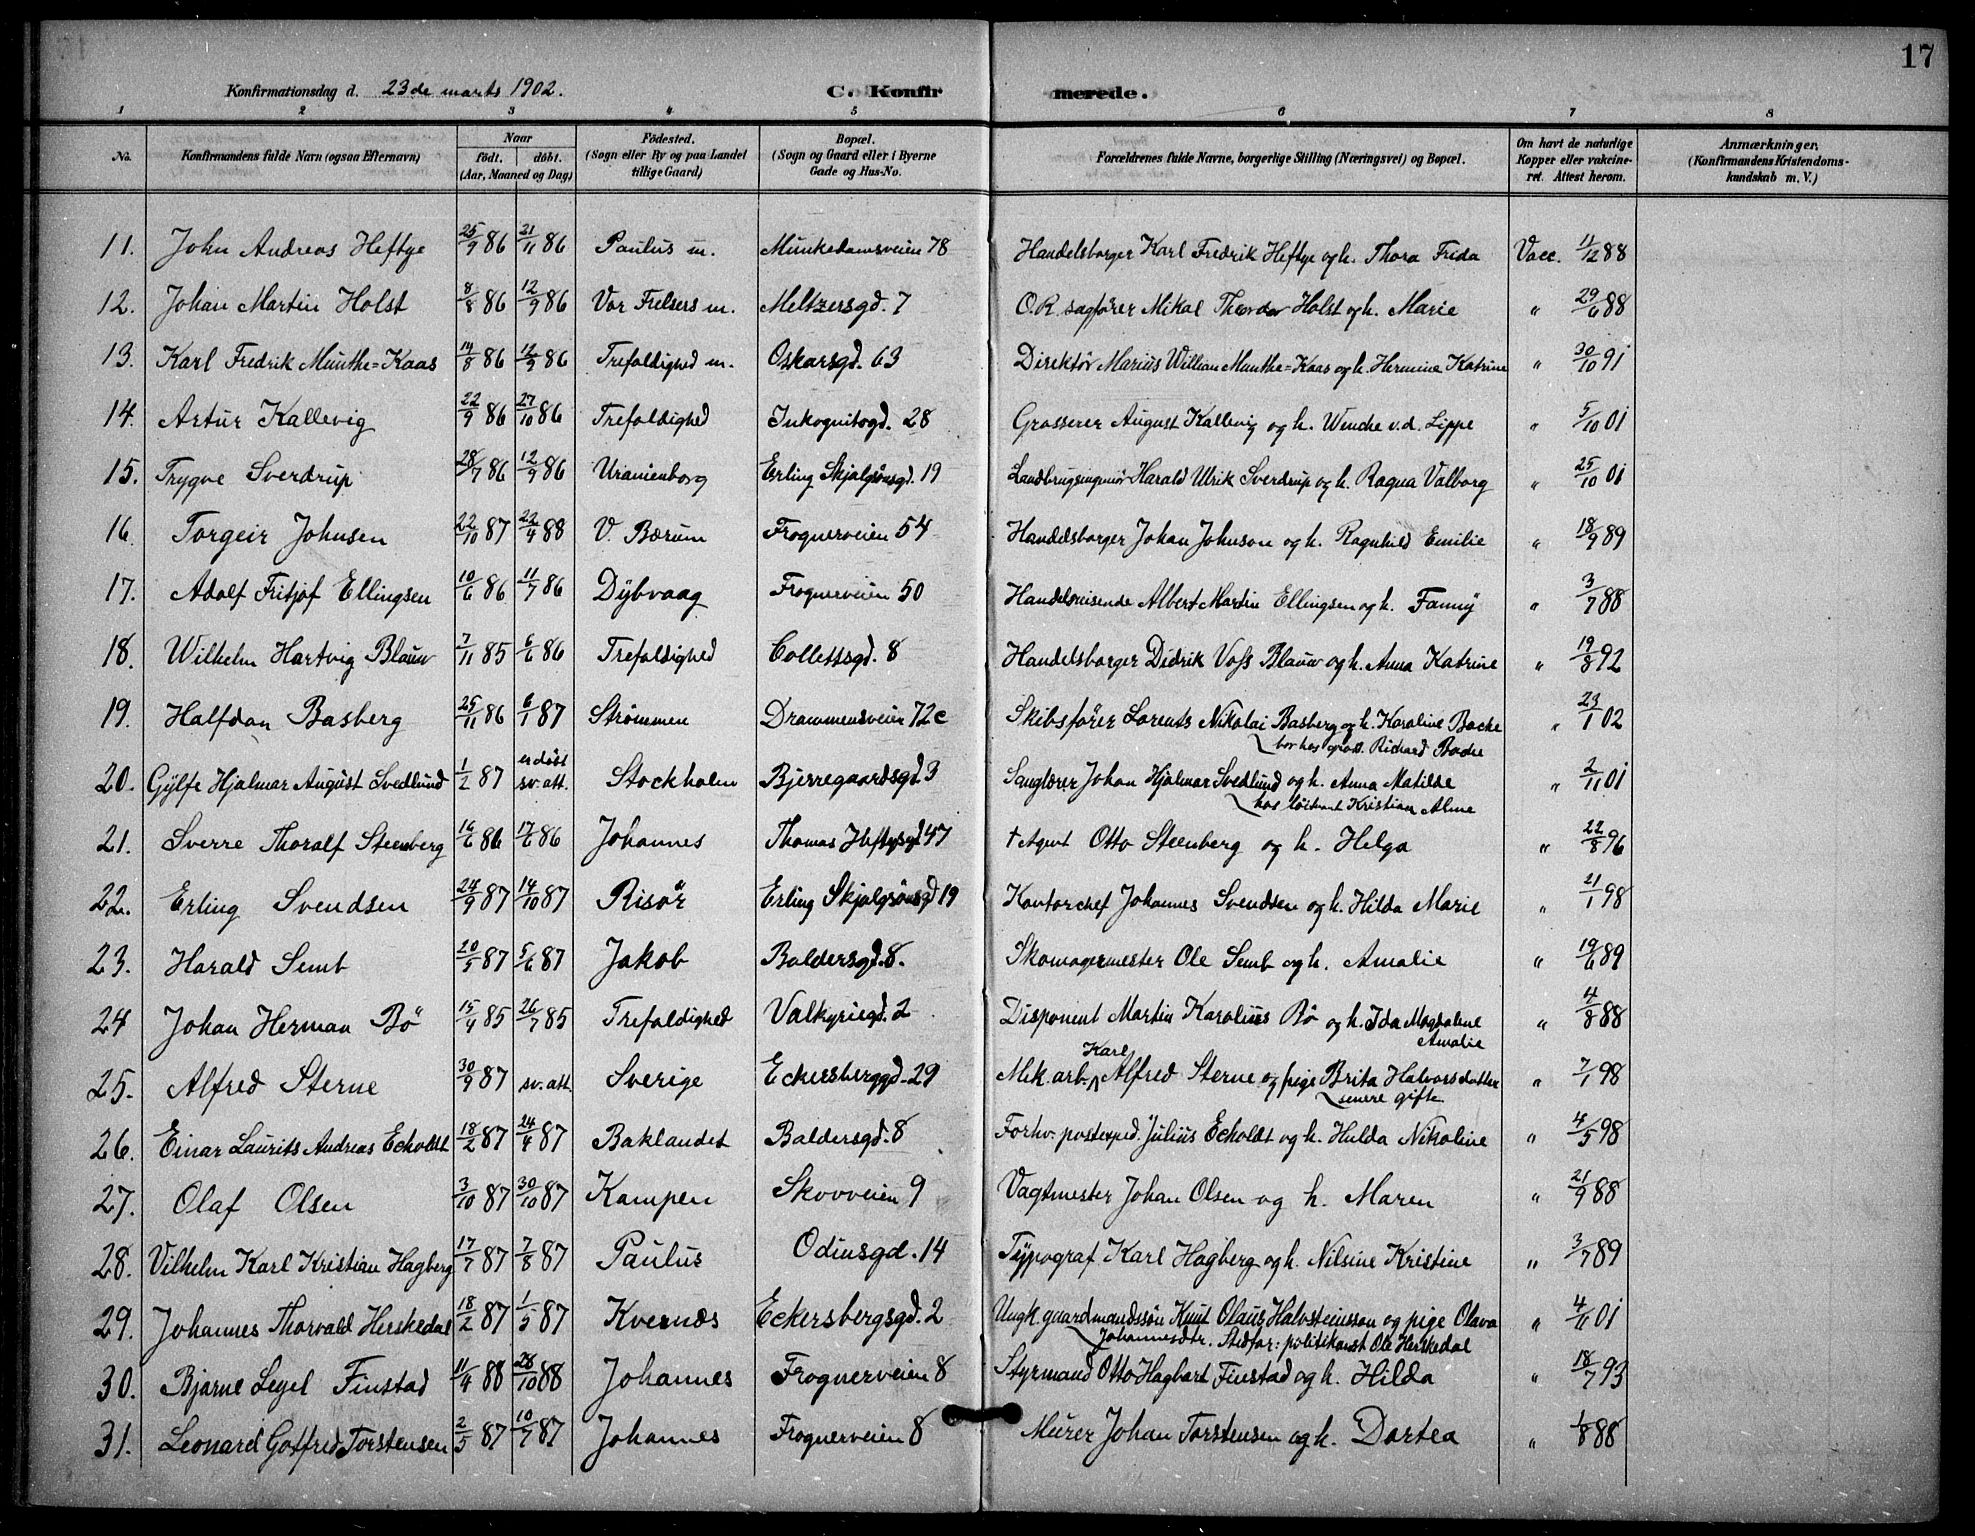 17
Konfirmationsdag d. 23de marts 1902. C. Konfirmerede.
1 2 3 4 5 6 7 8
No. Konfirmandens fulde Navn (ogsaa Efternavn) Naar født. døbt. (Aar, Maaned og Dag) Fødested. (Sogn eller By og paa Landet tillige Gaard) Bopæl. (Sogn og Gaard eller i Byerne Gade og Hus-No. Forældrenes fulde Navne, borgerlige Stilling (Næringsvei) og Bopæl. Om havt de naturlige Kopper eller vakcineret. Attest herom. Anmærkninger, (Konfirmandens Kristendomskundskab m. V.)
11. John Andreas Heftye 25/9 86 21/11 86 Paulus m. Munkedamsveien 78 Handelsborger Karl Fredrik Heftye og h. Thora Frida Vacc. 11/12 88
12. Johan Martin Holst 8/8 86 12/9 86 Vor Frelsers m. Meltzersgd. 7 O.R. sagfører Mikal Theodor Holst og h. Marie " 29/6 88
13. Karl Fredrik Munthe=Kaas 14/8 86 12/9 86 Trefoldighed m. Oskarsgd. 63 Direktør Marius Willian Munthe=Kaas og h. Hermine Katrine " 30/10 91
14. Artur Kallevig 22/9 86 27/10 86 Trefoldighed Inkognitogd. 28 Grosserer August Kallevig og h. Wenche v.d. Lippe " 5/10 01
15. Trygve Sverdrup 28/7 86 12/9 86 Uranienborg Erling Skjalgsønsgd. 19 Landbrugsingeniør Harald Ulrik Sverdrup og h. Ragna Valborg " 25/10 01
16. Torgeir Johnsen 22/10 87 22/4 88 V. Bærum Frognerveien 54 Handelsborger Johan Johnson og h. Ragnhild Emilie " 18/9 89
17. Adolf Fritjof Ellingsen 10/6 86 11/7 86 Dybvaag Frognerveien 50 Handelsreisende Albert Martin Ellingsen og h. Fanny " 3/7 88
18. Wilhelm Hartvig Blauw 7/11 85 6/6 86 Trefoldighed Collettsgd. 8 Handelsborger Didrik Voss Blauw og h. Anna Katrine " 19/8 92
19. Halfdan Basberg 25/11 86 6/1 87 Strømmen Drammensveien 72c Skibsfører Lorents Nikolai Basberg og h. Karoline Backe " 23/1 02
bor hos gross. Richard Backe
20. Gylfe Hjalmar August Svedlund 1/2 87 er døbt sv. att. Stockholm Bjerregaardsgd. 3 Sanglærer Johan Hjalmar Svedlund og h. Anna Matilde " 2/11 01
hos løitnant Kristian Alme
21. Sverre Thoralf Steenberg 16/6 86 17/6 86 Johannes Thomas Heftyesgd 47 † Agent Otto Steenberg og h. Helga " 22/8 96
22. Erling Svendsen 24/9 87 14/10 87 Risør Erling Skjalgsønsgd 19 Kontorchef Johannes Svendsen og h. Hilda Marie " 21/1 98
23. Harald Semb 20/5 87 5/6 87 Jakob Baldersgd. 8. Skomagermester Ole Semb og h. Amalie " 19/6 89
24 Johan Herman Bö 15/4 85 26/7 85 Trefoldighed Valkyriegd. 2 Disponent Martin Karolius Bø og h. Ida Magdalene Amalie " 4/8 88
25. Alfred Sterne 30/9 87 sv. att. Sverige Eckersberggd. 29 Mek. arb. Karl Alfred Sterne og pige Brita Halvorsdatter " 7/1 98
senere gifte
26. Einar Laurits Andreas Echoldt 18/2 87 24/4 87 Baklandet Baldersgd. 8 Forhv. postexped. Julius Echoldt og h. Hulda Nikoline " 4/5 98
27. Olaf Olsen 3/10 87 30/10 87 Kampen Skovveien 9 Vagtmester Johan Olsen og h. Maren " 21/9 88
28. Vilhelm Karl Kristian Hagberg 17/7 87 7/8 87 Paulus Odinsgd. 14 Typograf Karl Hagberg og h. Nilsine Kristine " 3/7 89
29. Johannes Thorvald Herskedal 18/2 87 1/5 87 Kvernæs Eckersbergsgd. 2 Ungk. gaardmandssøn Knut Olaus Halvsteinsson og pige Olava " 4/11 01
Johannesdtr. Stedfar: politikonst Ole Herskedal
30. Bjarne Segel Finstad 11/4 88 28/10 88 Johannes Frognerveien 8 Styrmand Otto Hagbart Finstad og h. Hilda " 18/7 93
31. Leonard Gotfred Torstensen 2/5 87 10/7 87 Johannes Frognerveien 8 Murer Johan Torstensen og h. Dortea " 1/8 88